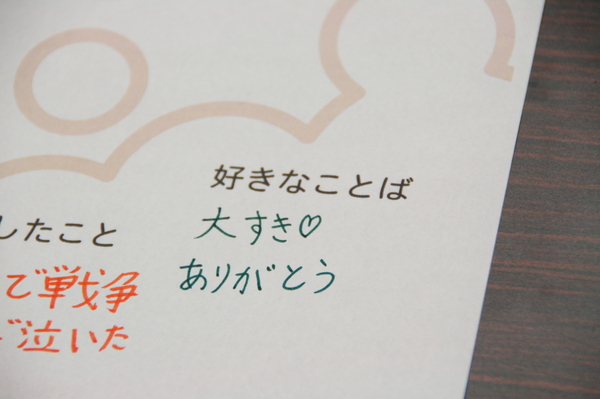 好きなことば
大すき♡
ありがとう
したこと
で戦争
泣いた